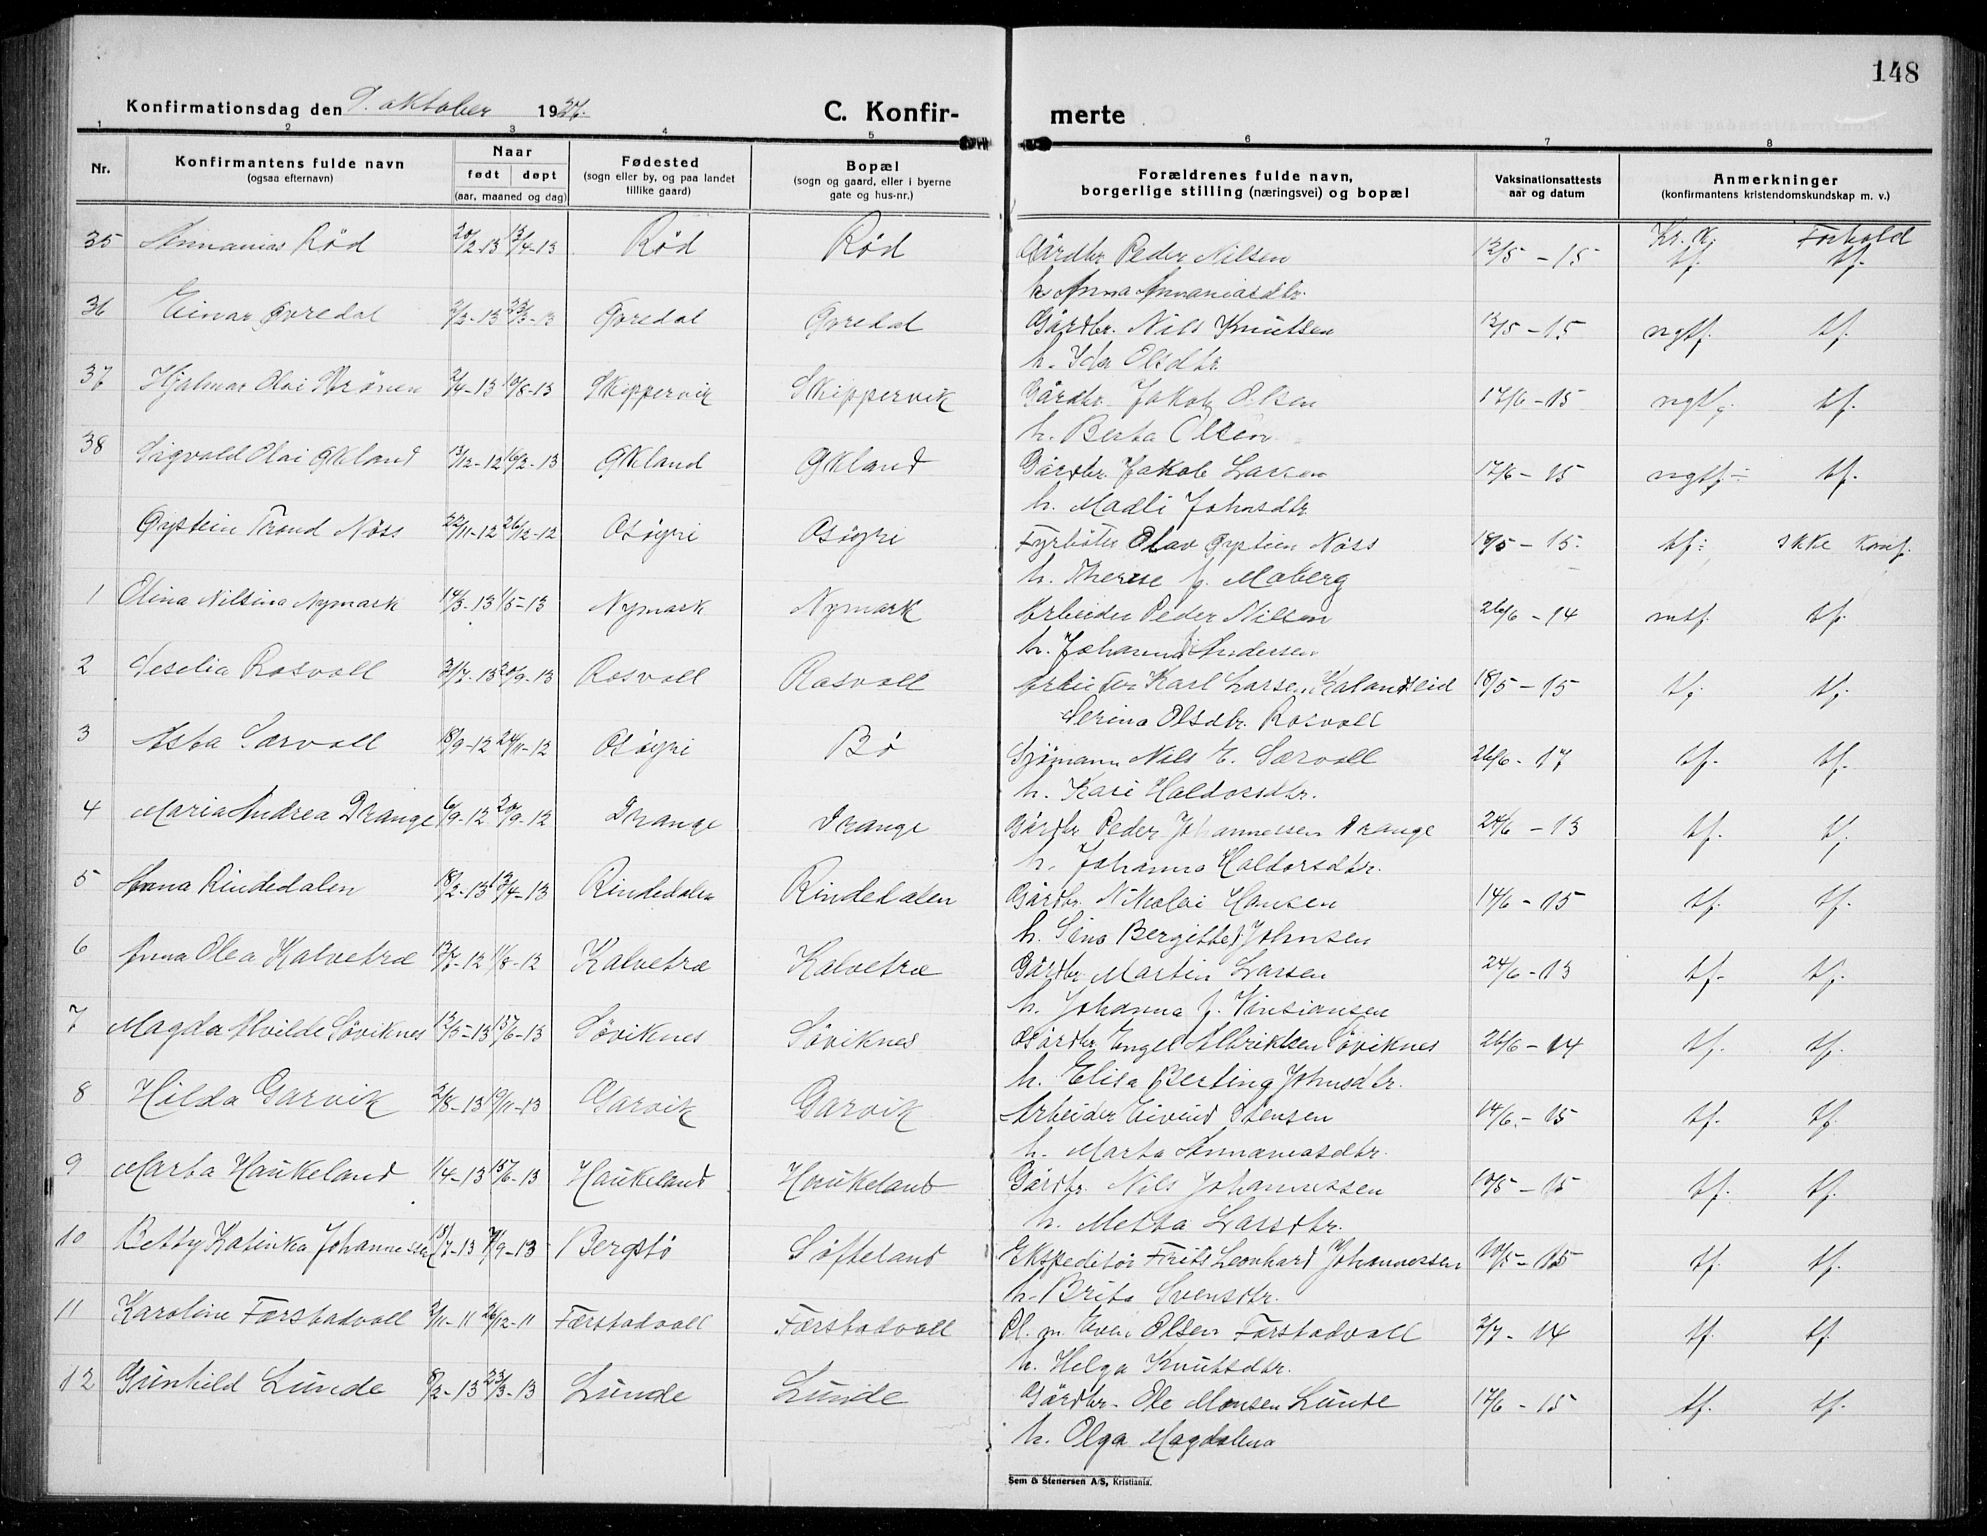 148
Konfirmationsdag den 9. oktober 1927.
C. Konfirmerte
1 2 3 4 5 6 7 8
Nr.
Konfirmantens fulde navn
(ogsaa efternavn)
Naar
født døpt
(aar, maaned og dag)
Fødested
(sogn eller by, og paa landet
tillike gaard)
Bopæl
(sogn og gaard, eller i byerne
gate og hus-nr.)
Forældrenes fulde navn,
borgerlige stilling (næringsvei) og bopæl
Vaksinationsattests
aar og datum
Anmerkninger
(konfirmantens kristendomskundskap m. v.)
Kr. K. Forhold
35 Annanias Rød 20/2-13 13/4-13 Rød Rød Gårdbr Peder Nilsen 12/5-15 tf. tf.
h. Anna Annaniasdtr.
36 Einar Øvredal 2/2-13 23/3-13 Øvredal Øvredal Gårdbr. Nils Knutsen 12/5-15 ngtf. tf.
h. Ida Olsdtr
37 Hjalmar Olai 2/4-13 10/8-13 Skippervik Skippervik Gårdbr. Jakob Olsen 17/6-15 ngtf. tf.
h. Berta Olsen
38 Sigvald Olai Økland 13/12-12 16/2-13 Økland Økland Gårdbr Jakob Larsen 17/6-15 ngtf÷ tf.
h. Madli Johnsdtr
Øystein Trond Nøss 22/11-12 26/12-12 Osøyri Osøyri Fyrbøter Olav Øystein Nøss 18/5-15. tf÷ ikke konf.
h. Therese f. Moberg
1 Olina Nilsina Nymark 14/3-13 1/5-13 Nymark Nymark Arbeider Peder Nilsen 26/6-14 mtf. tf.
h. Johanna Andersen
2 Seselia Rosvoll 31/7-13 20/9-13 Rosvoll Rosvoll Arbeider Karl Larsen Kalandseid 18/5-15 tf. tf.
Serina Olsdtr. Rosvoll
3 Asta Særvoll 18/9-12 24/11-12 Osøyri Bø Sjømann Nils E. Særvoll 26/6-17 tf. tf.
h. Kari Haldorsdtr.
4 Maria Andrea Drange 6/9-12 29/9-12 Drange Drange Gårdbr Peder Johannessen Drange 24/6-13 tf. tf.
h. Johanna Haldorsdtr.
5 Anna Rindedalen 18/2-13 13/4-13 Rindedalen Rindedalen Gårdbr. Nikolai Hansen 14/6-15 tf. tf.
h. Sina Bergitte Johnsen
6 Anna Olea Kalvetræ 13/7-12 11/8-12 Kalvetræ Kalvetræ Gårdbr Martin Larsen 24/6-13 tf. tf.
h. Johanna f.
7 Magda Alvilde Søviknes 12/5-13 15/6-13 Søviknes Søviknes Gårdbr Engel Albriktsen Søviknes 26/6-14 tf. tf.
h. Elisa Berting Johnsdtr.
8 Hilda Garvik 2/8-13 19/11-13 Garvik Garvik Arbeider Eivind Stensen 14/6-15 tf. tf.
h. Marta Annaniasdtr.
9 Marta Haukeland 1/4-13 15/6-13 Haukeland Haukeland Gårdbr Nils Johannessen 10/5-15 tf. tf.
h. Metta Larsdtr.
10 Betty Katinka Johannessen 15/7-13 7/9-13 Bergstø Søfteland Ekspeditør Frits Leonhard Johannessen 10/5-15 tf. tf.
h. Brita Svensdtr.
11 Karoline Førstadvoll 2/11-11 26/12-11 Førstadvoll Førstadvoll Pl. m. Even Olsen Førstadvoll 2/7-14 tf. tf.
h. Helga Knutsdtr.
12 Gunhild Lunde 8/2-13 23/3-13 Lunde Lunde Gårdbr. Ole Monsen Lunde 17/6-15 tf. tf.
h. Olga Magdalena
Sem & Stenersen A/S, Kristiania.